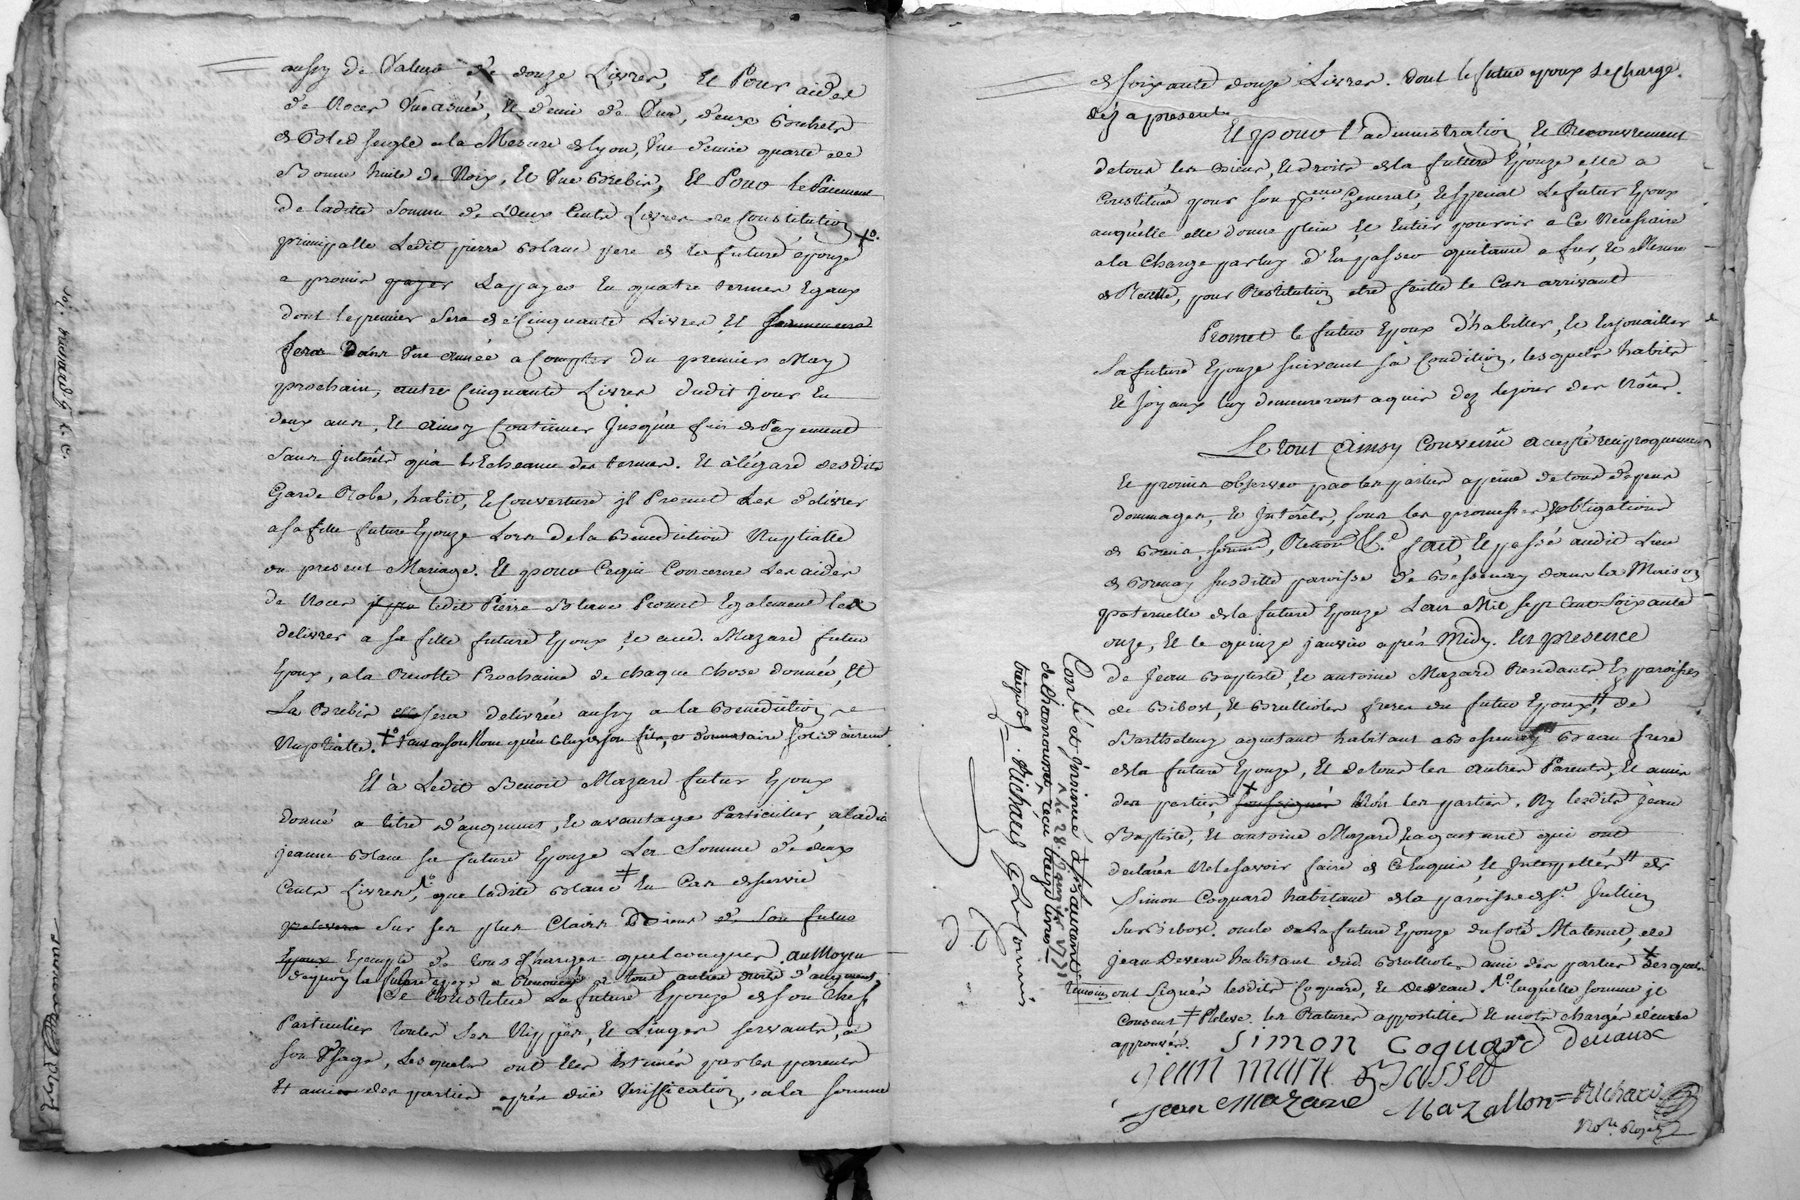 aussy de Valeur de douze Livres, Et Pour aider
de Noces Une asnée, Et demi de Vin, deux Bichets
de Bled seigle a la Mesure de lyon, Une demie quarte de
Bonne huile de Noix, Et Une Brebis, Et Pour le Paiement
De ladite Somme de Deux Cents Livres de Constitution
principalle Ledit pierre Blanc pere de la future épouze
a promis payer La payer En quatre termes Egaux
dont le premier Sera de Cinquante Livres Et
Sera Dans Une année a Compter du premier May
prochain, autre Cinquante Livres dudit Jour En
deux ans, Et ainsy Continuer Jusqu'en fin de Payement
Sans Interêts qu'a l'Echeance des termes. Et à l'égard desdits
Garde Robe, habit, Et Couverture jl Promet Les délivrer
a sa fille future Epouze Lors de la Benediction Nuptialle
du present Mariage. Et pour Cequi Concerne Les aides
de Noces ledit Pierre Blanc Promet Egalement les
delivrer a sa fille future Epoux, Et aud. Mazard futur
Epoux, a la Recolte Prochaine de chaque chose donnée, Et
La Brebis sera délivrée aussy a la Bénédiction
Nuptialle.
Et à Ledit Benoit Mazard futur Epoux
donné a titre d'augment, Et avantage Particulier, a ladite
jeanne Blanc sa future Epouze La Somme de deux
Cents Livres, que ladite Blanc En Cas de survie
prelevera Sur ses plus Clairs Biens de Son futur
Epoux Exempte de tous Charges quelconques. au Moyen
dequoy la future epouze a Renoncé a tout autres droits d'augment.
Se Constitue La future Epouze de son Chef
Particulier toutes Ses Nippes, Et Linges servants, a
son Usage, Lesquels ont Eté Estimés par les parents
Et amis des parties après düe Verification, a la somme
de soixante douze Livres. dont le futur epoux se charge.
déz a present
Et pour l'administration Et Recouvrement
de tous les Biens, Et droits de la future Epouze, elle a
Constitué pour son general, Et special Le futur Epoux
auquel elle donne plein Et Entier pouvoir a Ce Necessaire
a la Charge par luy d'En passer quitance a fur, Et Mesure
de Recette, pour Restitution etre faitte le Cas arrivant
Promet le futur Epoux d'habiller, Et Enjouailler
Sa future Epouze suivant sa Condition, lesquels habits
Et Joyaux luy demeureront aquis déz le jour des Nôces.
Le tout Ainsy Convenu accepté reciproquement
Et promis observer par les parties a peine de tous depens
dommages, Et Interêts, sous les promesses, obligations
de Biens, Renon &.c fait, Et passé audit Lieu
de Brenay susditte paroisse de Bessenay dans la Maison
paternelle de la future Epouze L'an Mil sept Cent soixante
onze, Et le quinze janvier après Midy. En presence
de Jean Baptiste, Et antoine Mazard Residants Es paroisses
de Bibost, Et Brullioles freres du futur Epoux, de
Barthelemy aquetant habitant a Bessenay Beau frere
de la future Epouze, Et de tous les autres Parents, Et amis
des parties, Non les parties, Ny lesdits Jean
Baptiste, Et antoine Mazard, Et aquetant qui ont
declarés Ne le savoir faire de Ce Enquis, Et Interpellés
Simon Coquard habitant de la paroisse de St. Jullien
Sur Bibost. oncle de la future Epouze du Coté Maternel, de
Jean Deveau habitant dud. Brullioles ami des parties desquels
temoins ont Signés lesdits Coquard, Et Deveau. laquelle somme jl
Consent les Ratures appostilles Et mots chargés d'encre
approuvés.
Simon Coquard Devaux
jean marie
jean Mazard Mazallon Richard
Nore. Royal
Conlé et insinué à st laurent
de Chamousset, le 28 Janvier 1771
reçu treize livres
treize sols. Richard